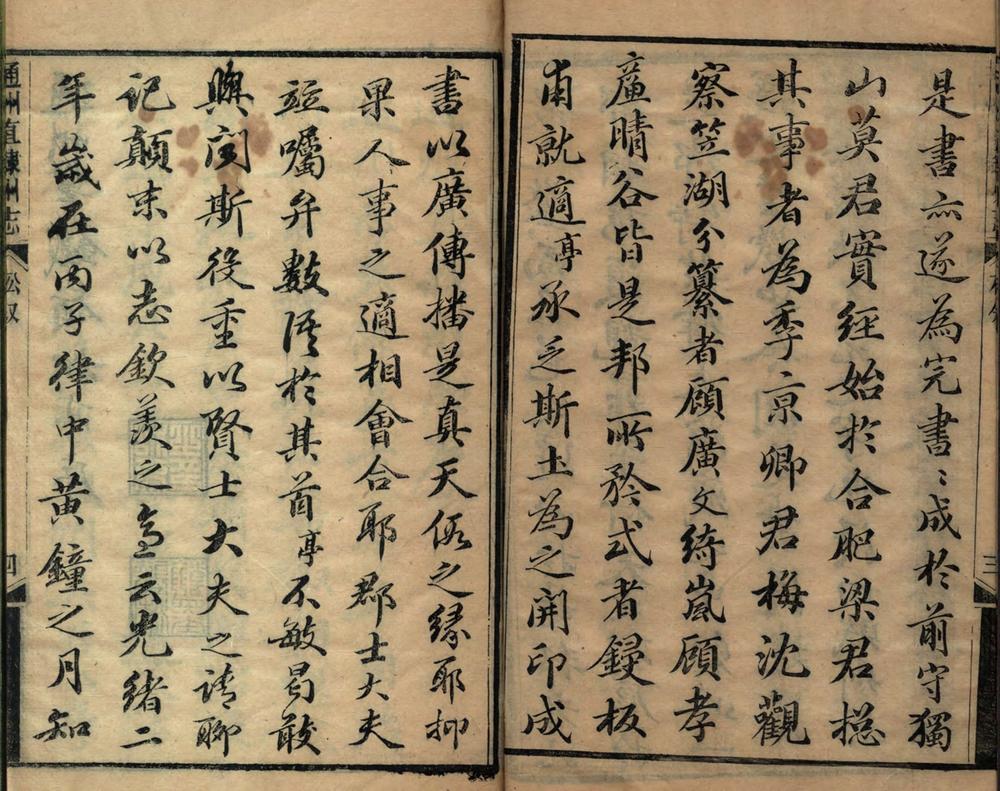 是書亦遂為完書〻成於前守獨
山莫君實經始於合肥梁君揔
其事者為季京卿君梅沈觀
察笠湖分纂者顧廣文綺嵐顧孝
廉晴谷皆是邦所矜式者鋟板
甫就適亭承乏斯土為之開印成
三
書以廣傳播是真天假之緣耶抑
果人事之適相會合耶郡士大夫
竝囑弁數語於其首亭不敏曷敢
與聞斯役重以賢士大夫之請聊
記顛末以志欽羨之意云光緒二
年歲在丙子律中黃鐘之月知
通州直隸州志 松叙 四